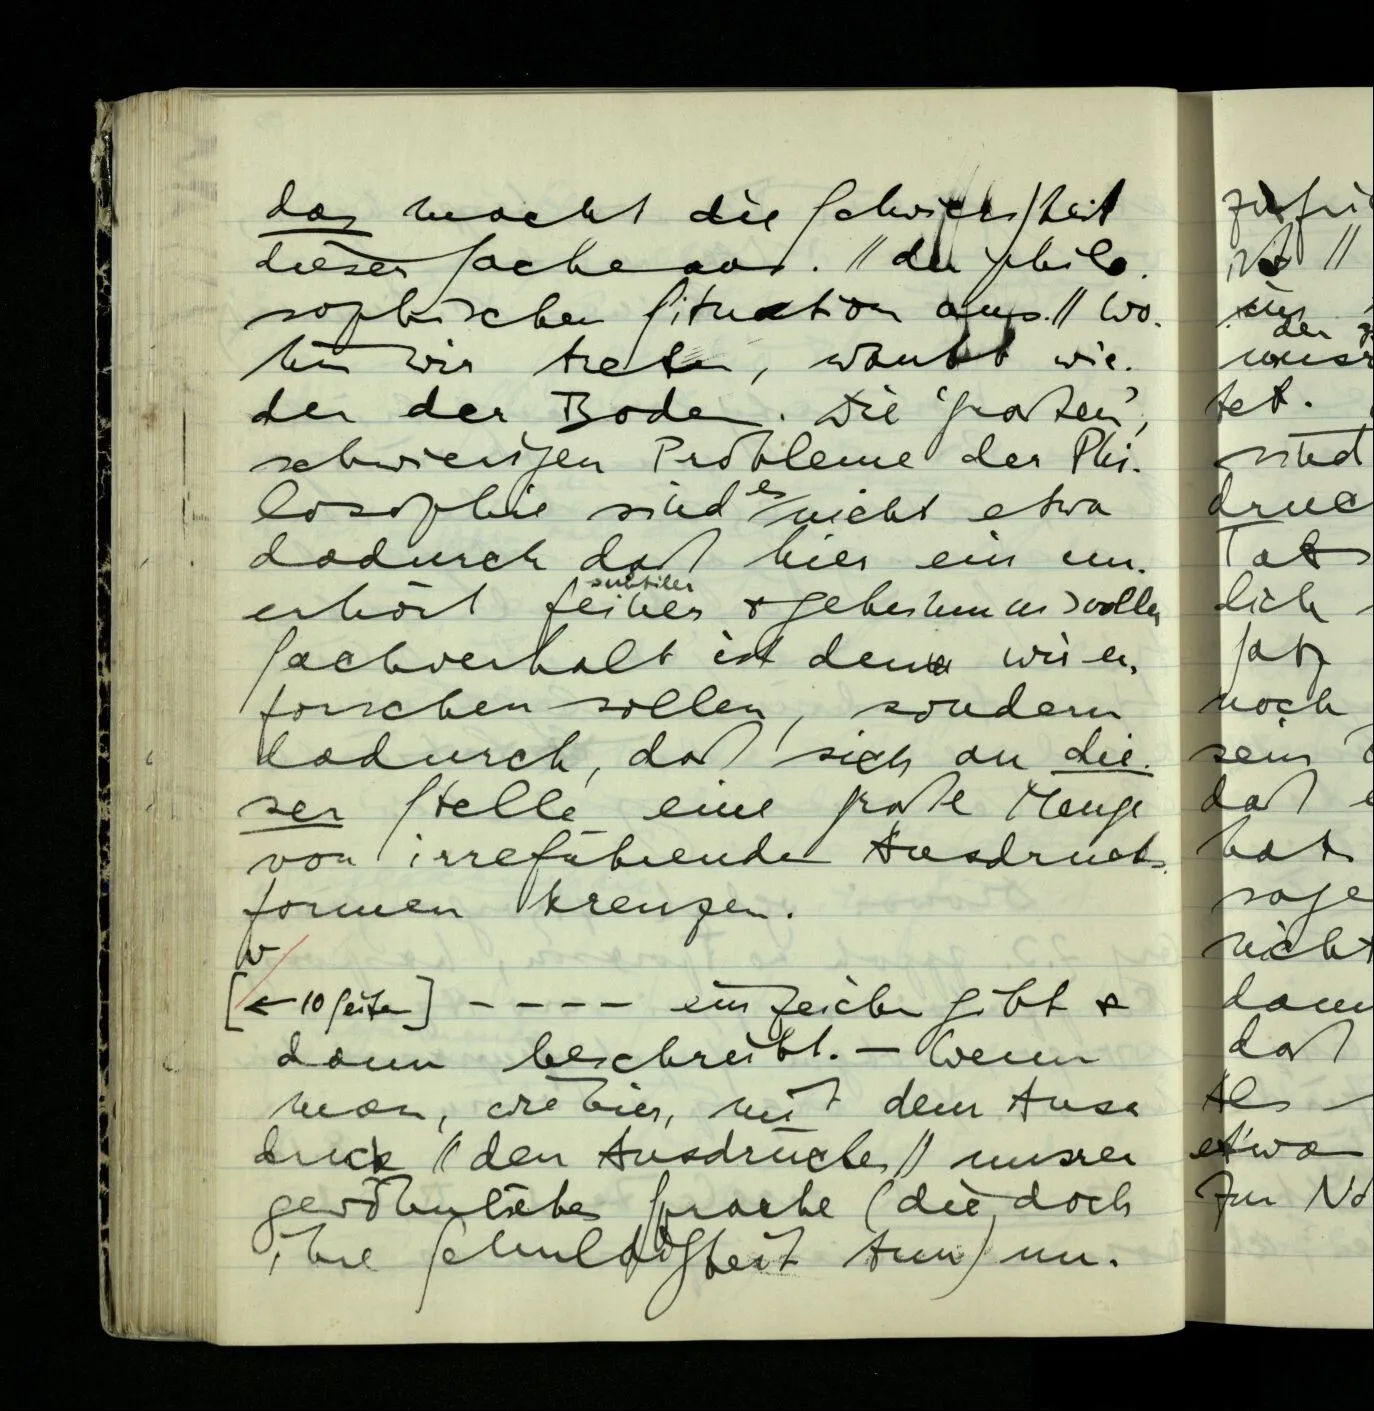 das macht die Schwierigkeit
dieser Sache aus. // der philo-
sophischen Situation aus. // Wo-
hin wir treten, wankt wie-
der der Boden. Die 'großen',
schwierigen Probleme der Phi-
losophie sind es nicht etwa
dadurch daß hier ein un-
subtiler
erhört feiner & geheimnisvoller
Sachverhalt ist den wir er-
forschen sollen, sondern
dadurch, daß sich an die-
ser Stelle eine große Menge
von irreführenden Ausdrucks-
formen kreuzen.
[← 10 Seiten] – – – – ein Zeichen gibt &
dann beschreibt. – Wenn
man, wie hier, mit dem Aus-
druck // den Ausdrücken // unsrer
gewöhnlichen Sprache (die doch
ihre Schuldigkeit tun) un-
zufri
ist //
der
unsr
tet.
sind
druc
Tats
lich
Satz
noch
sein
daß
hat
sage
nicht
dann
daß
Als
etwa
zur No